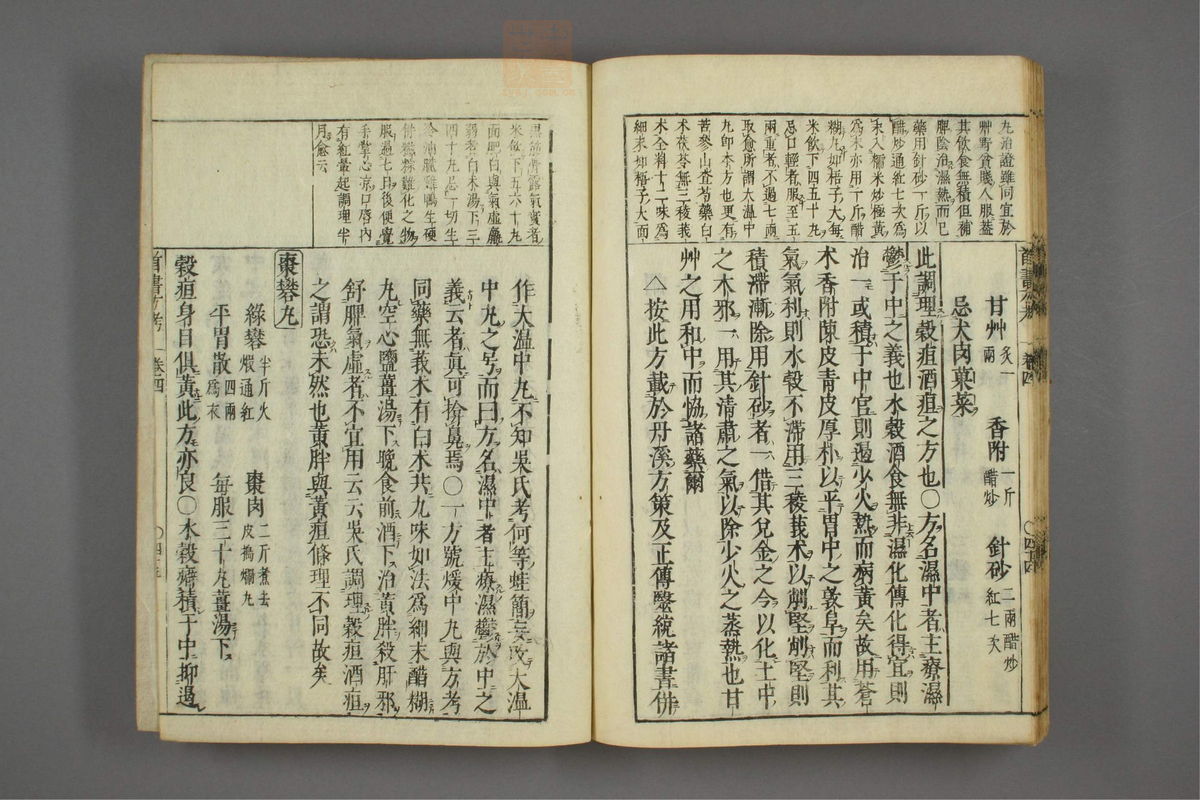 九治證雖同宜於
艸野貧賤人服蓋
其飲食無積但補
脾陰治濕熱而已
藥用針砂一斤以
醋炒通紅七次爲
末入糯米炒極黃
爲末亦用一斤醋
糊丸如梧子大每
米飲下四五十九
忌口輕者服至五
兩重者不過七兩
取愈所謂大温中
九卽本方也更有
苦參山査芍藥白
术茯苓無三稜莪
术全料十二味爲
細末如梧子大而
甘艸 炙一兩 香附 一斤醋炒 針砂 二兩醋炒紅七次
忌犬肉菓菜
此調理穀疸酒疸之方也○方名濕中者主療濕
鬱于中之義也水穀酒食無非濕化傳化得宜則
治一或積于中宮則遏少火熱而病黃矣故用蒼
术香附陳皮青皮厚朴以平胃中之敦阜而利其
氣氣利則水穀不滯用三稜莪术以削堅削堅則
積滯漸除用針砂者一借其兌金之令以化土中
之木邪一用其清肅之氣以除少火之蒸熱也甘
艸之用和中而恊諸藥爾
△按此方載於丹溪方策及正傳醫統諸書併
首書方考 卷四 ○四十四
米飲下五六十九
面肥白與氣虛羸
弱者白术湯下三
四十九忌一切生
冷油膩雞鴨生硬
骨糍粽難化之物
服過七日後便覺
手掌心凉口唇内
有紅暈起調理半
月愈云
作大温中九不知吳氏考何等蛙簡妄改大温
中九之号而曰方名濕中者主療濕鬱於中之
義云者眞可揜鼻焉○一方號煖中九與方考
同藥無莪术有白术共九味如法爲細末醋糊
九空心鹽薑湯下晚食前酒下治黃胖殺肝邪
舒脾氣虛者不宜用云云吳氏調理穀疸酒疸
之謂恐未然也黃胖與黃疸條理不同故矣
棗礬九
綠礬 半斤火煅通紅 棗肉 二斤煮去皮搗爛九
平胃散 四兩爲衣 每服三十九薑湯下
穀疸身目俱黃此方亦良○水穀癖積于中抑遏
首書方考 卷四